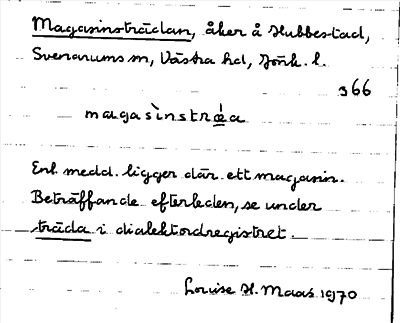 Magasinsträdan, åker å Hubbestad,
Svenarums sn, Västra hd, Jönk. l.
366
magasìnstrǽa
Enl. medd. ligger där ett magasin.
Beträffande efterleden, se under
träda i dialektordregistret.
Louise H. Maas 1970